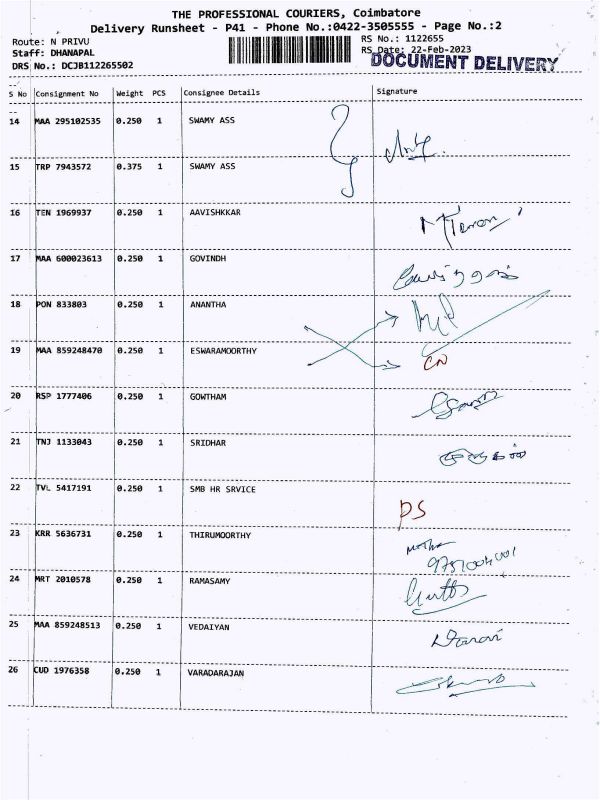 THE PROFESSIONAL COURIERS, Coimbatore
Delivery Runsheet - P41 - Phone No.:0422-3505555 - Page No.:2
Route: N PRIVU
RS No.: 1122655
Staff: DHANAPAL
RS Date: 22-Feb-2023
DRS No.: DCJB112265502
DOCUMENT DELIVERY
S No Consignment No Weight PCS Consignee Details Signature
14 MAA 295102535 0.250 1 SWAMY ASS
15 TRP 7943572 0.375 1 SWAMY ASS
16 TEN 1969937 0.250 1 AAVISHKKAR
17 MAA 600023613 0.250 1 GOVINDH
18 PON 833803 0.250 1 ANANTHA
19 MAA 859248470 0.250 1 ESWARAMOORTHY CN
20 RSP 1777406 0.250 1 GOWTHAM
21 TNJ 1133043 0.250 1 SRIDHAR
22 TVL 5417191 0.250 1 SMB HR SRVICE PS
23 KRR 5636731 0.250 1 THIRUMOORTHY
24 MRT 2010578 0.250 1 RAMASAMY
25 MAA 859248513 0.250 1 VEDAIYAN
26 CUD 1976358 0.250 1 VARADARAJAN